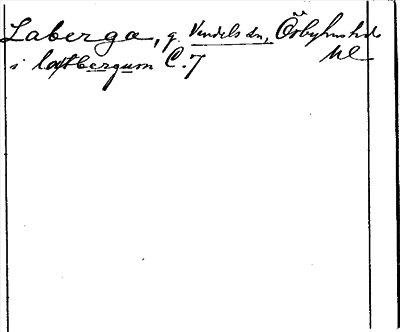 Laberga, g. Vendels sn, Örbyhus hd
i laxbergum C.7 Ul